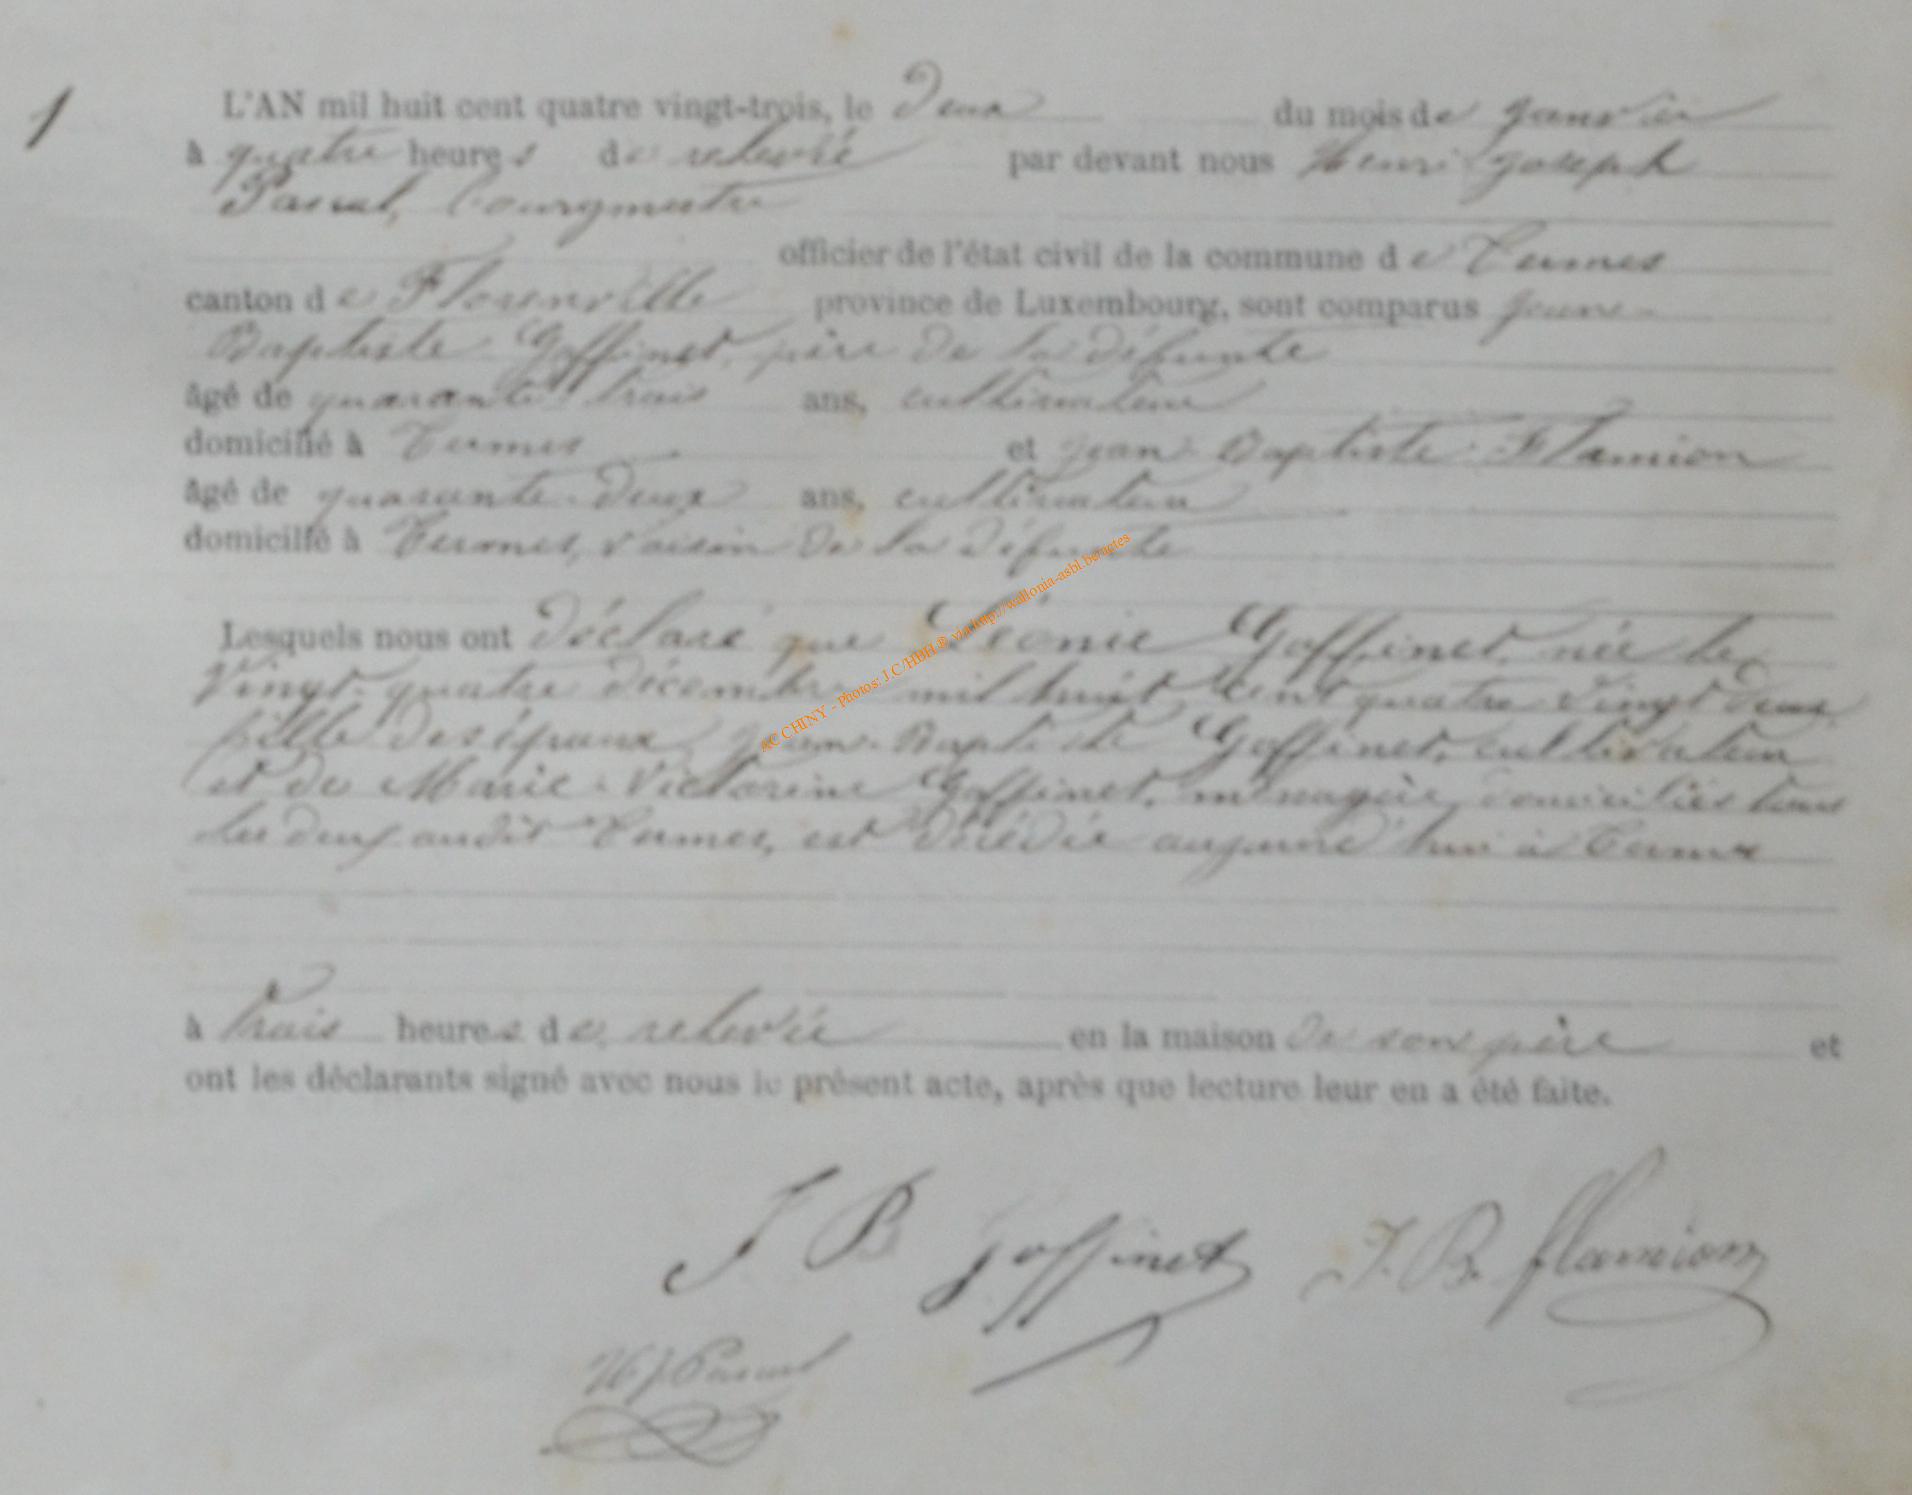 1
L'AN mil huit cent quatre vingt-trois, le Deux du mois de Janvier
à quatre heures de relevée par devant nous Henri Joseph
Bourgmestre
officier de l'état civil de la commune de Termes
canton de Florenville province de Luxembourg, sont comparus Jean
Baptiste Goffinet, père de la défunte
âgé de quarante trois ans, cultivateur
domicilié à Termes et Jean Baptiste Flamion
âgé de quarante-deux ans, cultivateur
domicilié à Termes, voisin de la défunte
Lesquels nous ont déclaré que Léonie Goffinet, née le
Vingt-quatre décembre mil huit cent quatre vingt deux,
fille des époux Jean-Baptiste Goffinet, cultivateur
et de Marie-Victorine Goffinet, ménagère, domiciliés tous
les deux audit Termes, est décédée aujourd'hui à Termes
à trois heures de relevée en la maison de son père et
ont les déclarants signé avec nous le présent acte, après que lecture leur en a été faite.
J B Goffinet J. B. flamion
AC CHINY - Photos: J.C/HBH® via http://wallonia-asbl.be/actes